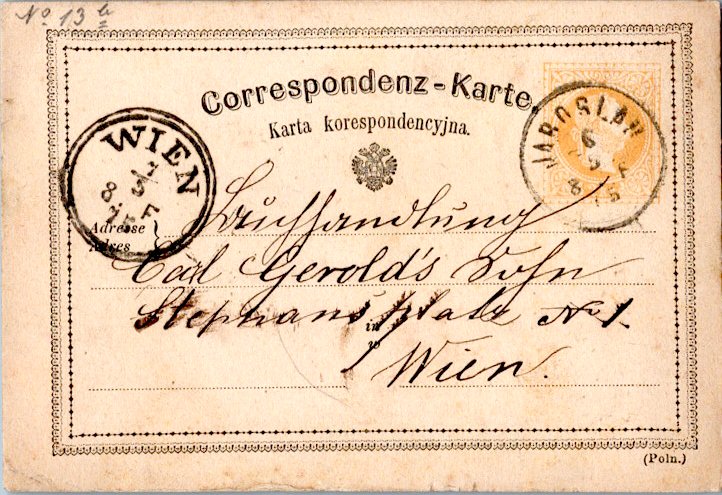 No 13
Correspondenz-Karte.
Karta korespondencyjna.
JAROSLAU
WIEN
Adresse
Adres
Buchhandlung
Carl Gerold's Sohn
Stephansplatz No 1.
in
w
Wien.
(Poln.)